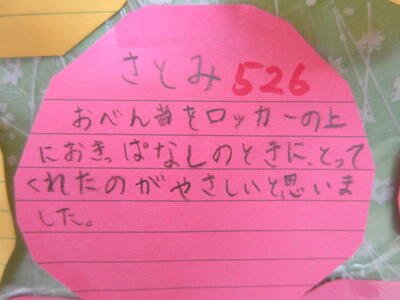 さとみ 526
おべん当をロッカーの上
におきっぱなしのときに、とって
くれたのがやさしいと思いま
した。